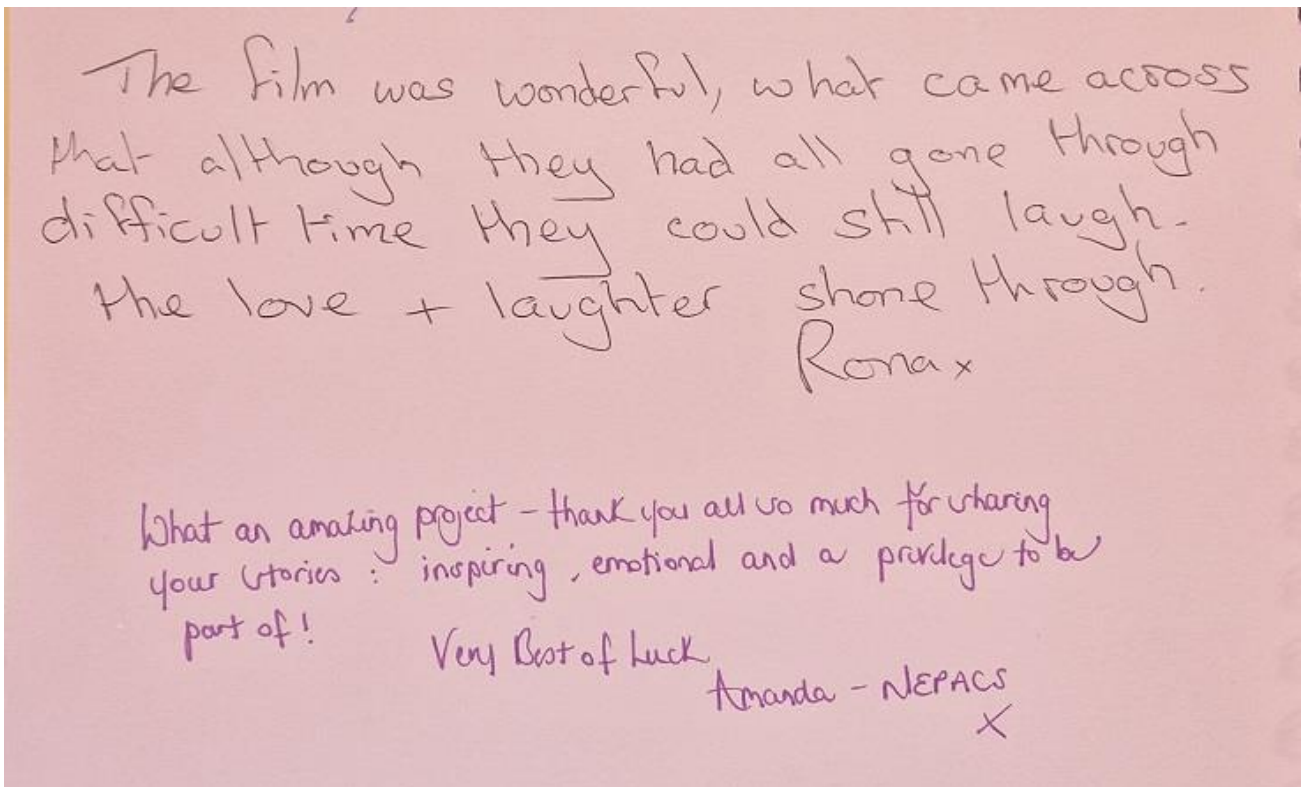 The film was wonderful, what came across
that although they had all gone through
difficult time they could still laugh.
the love + laughter shone through.
Rona x
What an amazing project - thank you all so much for sharing
your stories : inspiring, emotional and a privilege to be
part of!
Very Best of Luck
Amanda - NEPACS
X